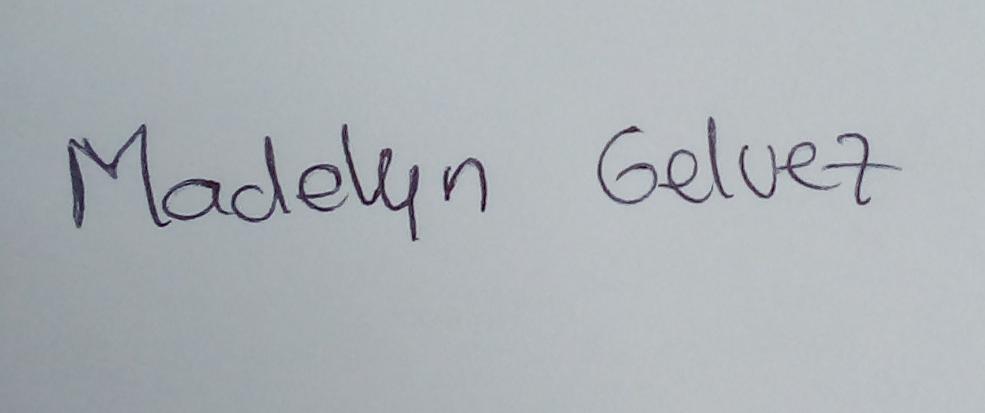 Madelyn Gelvez